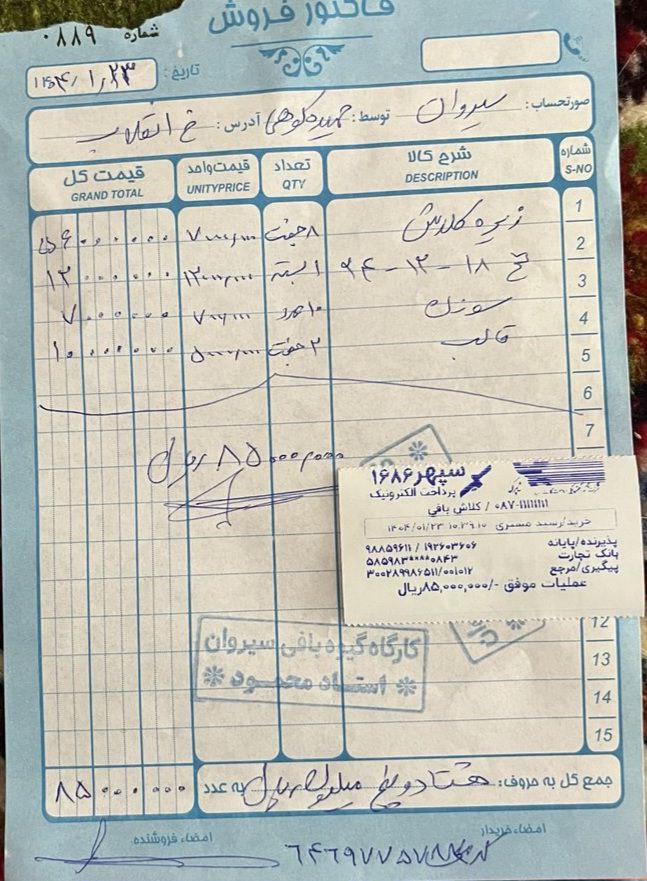 فاکتور فروش
شماره ۰۸۸۹
تاریخ: ۱۴۰۴/۱/۲۳
صورتحساب: سیروان توسط: حمید کوهی آدرس: خ انقلاب
شماره S-NO شرح کالا DESCRIPTION تعداد QTY قیمت واحد UNITYPRICE قیمت کل GRAND TOTAL
1 زیره کلاش ۸ جفت ۷۰۰۰/۰۰۰ ۵۶۰۰۰۰۰۰
2
3 نخ ۱۸ - ۱۲ - ۲۴ ۱ بسته ۱۲۰۰۰/۰۰۰ ۱۲۰۰۰۰۰۰
4 سوزن ۱۰ عدد ۷۰۰/۰۰۰ ۷۰۰۰۰۰۰
5 قالب ۲ جفت ۵۰۰۰/۰۰۰ ۱۰۰۰۰۰۰۰
6
7
۸۵۰۰۰/۰۰۰ ریال
سپهر ۱۶۸۶
پرداخت الکترونیک
۰۸۷-۱۱۱۱۱۱۱ / کلاش بافی
خرید/رسید مشتری ۱۴۰۴/۰۱/۲۳
پذیرنده/پایانه ۱۹۲۶۰۳۶۰۶ / ۹۸۸۵۹۶۱۱
بانک تجارت ۵۸۵۹۸۳****۰۸۴۳
پیگیری/مرجع ۳۰۰۲۸۹۹۸۶۵۱۱/۰۰۱۰۱۲
عملیات موفق -/۸۵,۰۰۰,۰۰۰ریال
12
کارگاه گیوه بافی سیروان
استاد محمود
13
14
15
جمع کل به حروف: هشتاد و پنج میلیون ریال به عدد ۸۵۰۰۰۰۰۰
امضاء خریدار امضاء فروشنده